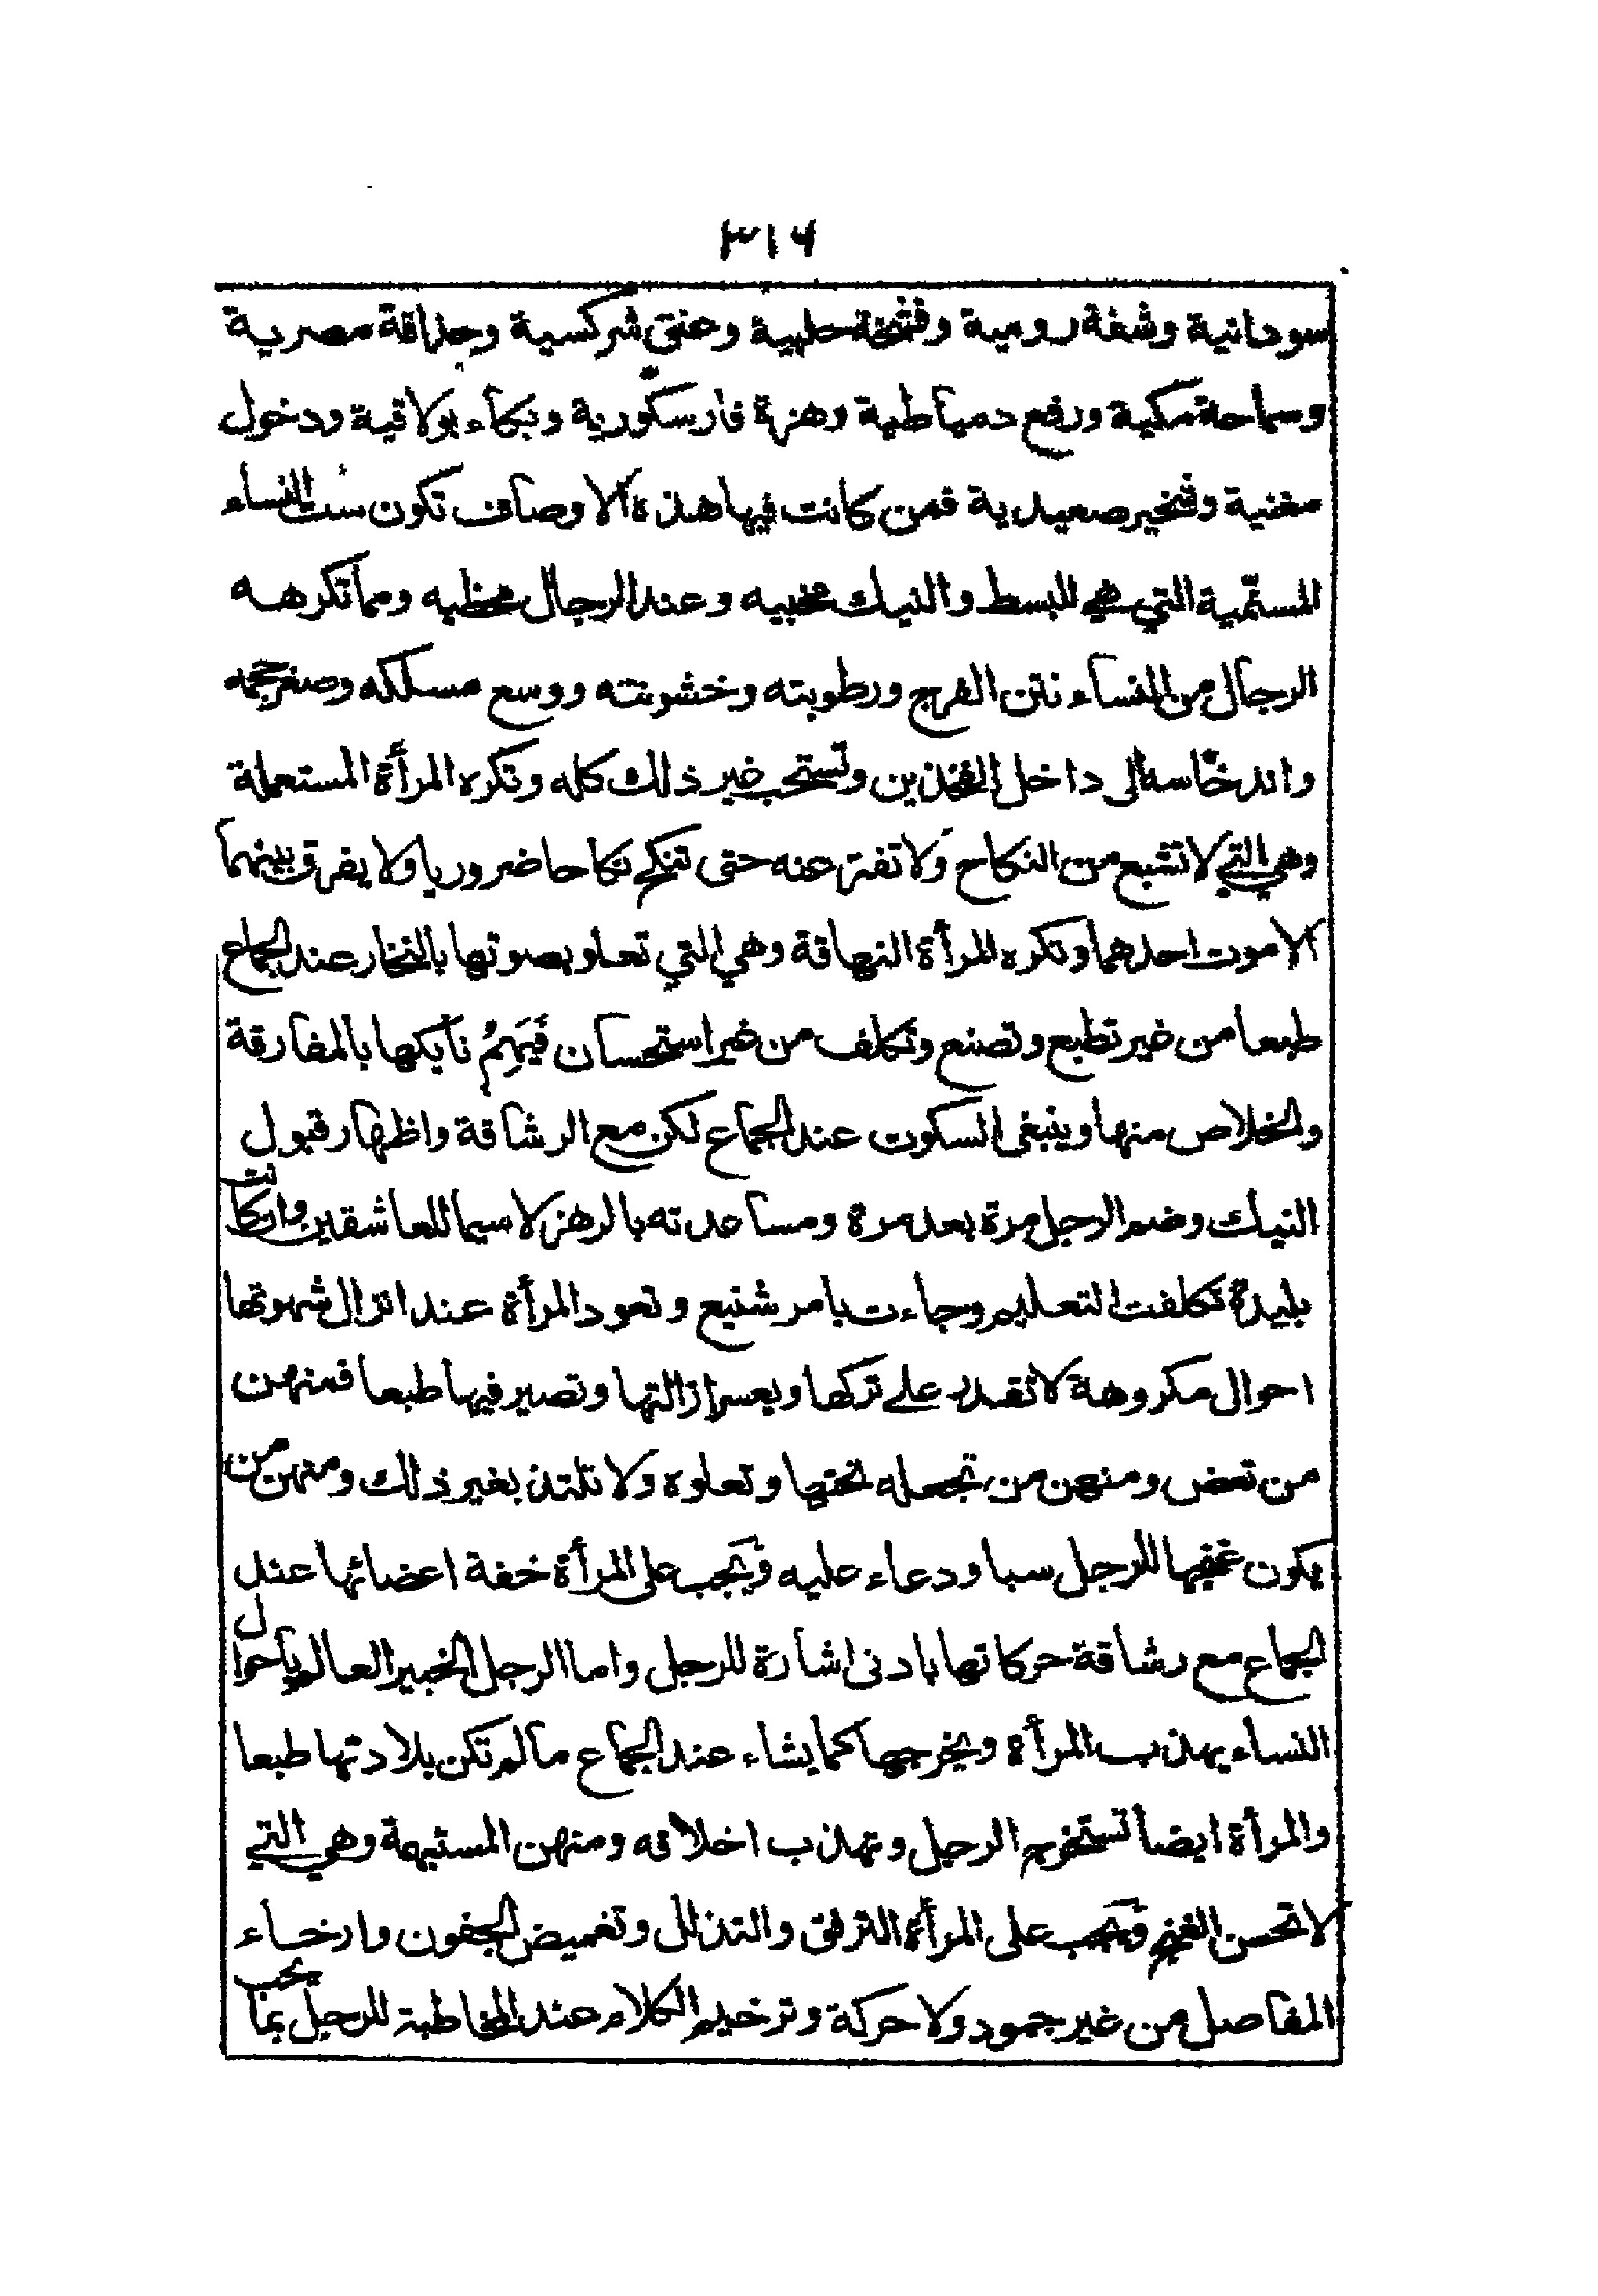 ٣١٦
سودانية وشفة رومية وفتخة حلبية وعنق شركسية وحلاقة مصرية
وسماحة مكية ورفع دمياطية وهزة فارسكورية وبكاء بولاقية ودخول
مغنية وشخير صعيدية فمن كانت فيها هذه الاوصاف تكون ست النساء
المسمية التي هي للبسط والنيك مخبيه وعند الرجال محظيه ومما تكرهه
الرجال من النساء نتن الفرج ورطوبته وخشونته ووسع مسلكه وصغر حجمه
واندخاسه الى داخل الفخذين وتستحب غير ذلك كله وتكره المرأة المستعملة
وهي التي لا تشبع من النكاح ولا تفتر عنه حتى تنكح نكاحا ضروريا ولا يفرق بينهما
الا موت احدهما وتكره المرأة النهاقة وهي التي تعلو بصوتها بالنخار عند الجماع
طبعا من غير تطبع وتصنع وتكلف من غير استحسان فَيَهِمُّ نايكها بالمفارقة
والخلاص منها وينبغى السكوت عند الجماع لكن مع الرشاقة واظهار قبول
النيك وضم الرجل مرة بعد مرة ومساعدته بالرهز لا سيما للعاشقين وان كانت
بليدة تكلفت التعليم وجاءت بامر شنيع وتعود المرأة عند انزال شهوتها
احوال مكروهة لا تقدر على تركها ويعسر ازالتها وتصير فيها طبعا فمنهن
من تعض ومنهن من تجعله تحتها وتعلوه ولا تلتذ بغير ذلك ومنهن من
يكون غنجها للرجل سبا ودعاء عليه ويجب على المرأة خفة اعضائها عند
الجماع مع رشاقة حركاتها بادنى اشارة للرجل واما الرجل الخبير العالم باحوال
النساء يهذب المرأة ويخرجها كما يشاء عند الجماع ما لم تكن بلادتها طبعا
والمرأة ايضا تستخرج الرجل وتهذب اخلاقه ومنهن المستبهمة وهي التي
لا تحسن الغنج فيجب على المرأة الترفق والتذلل وتغميض الجفون وارخاء
المفاصل من غير جمود ولا حركة وترخيم الكلام عند المخاطبة للرجل بما يحب